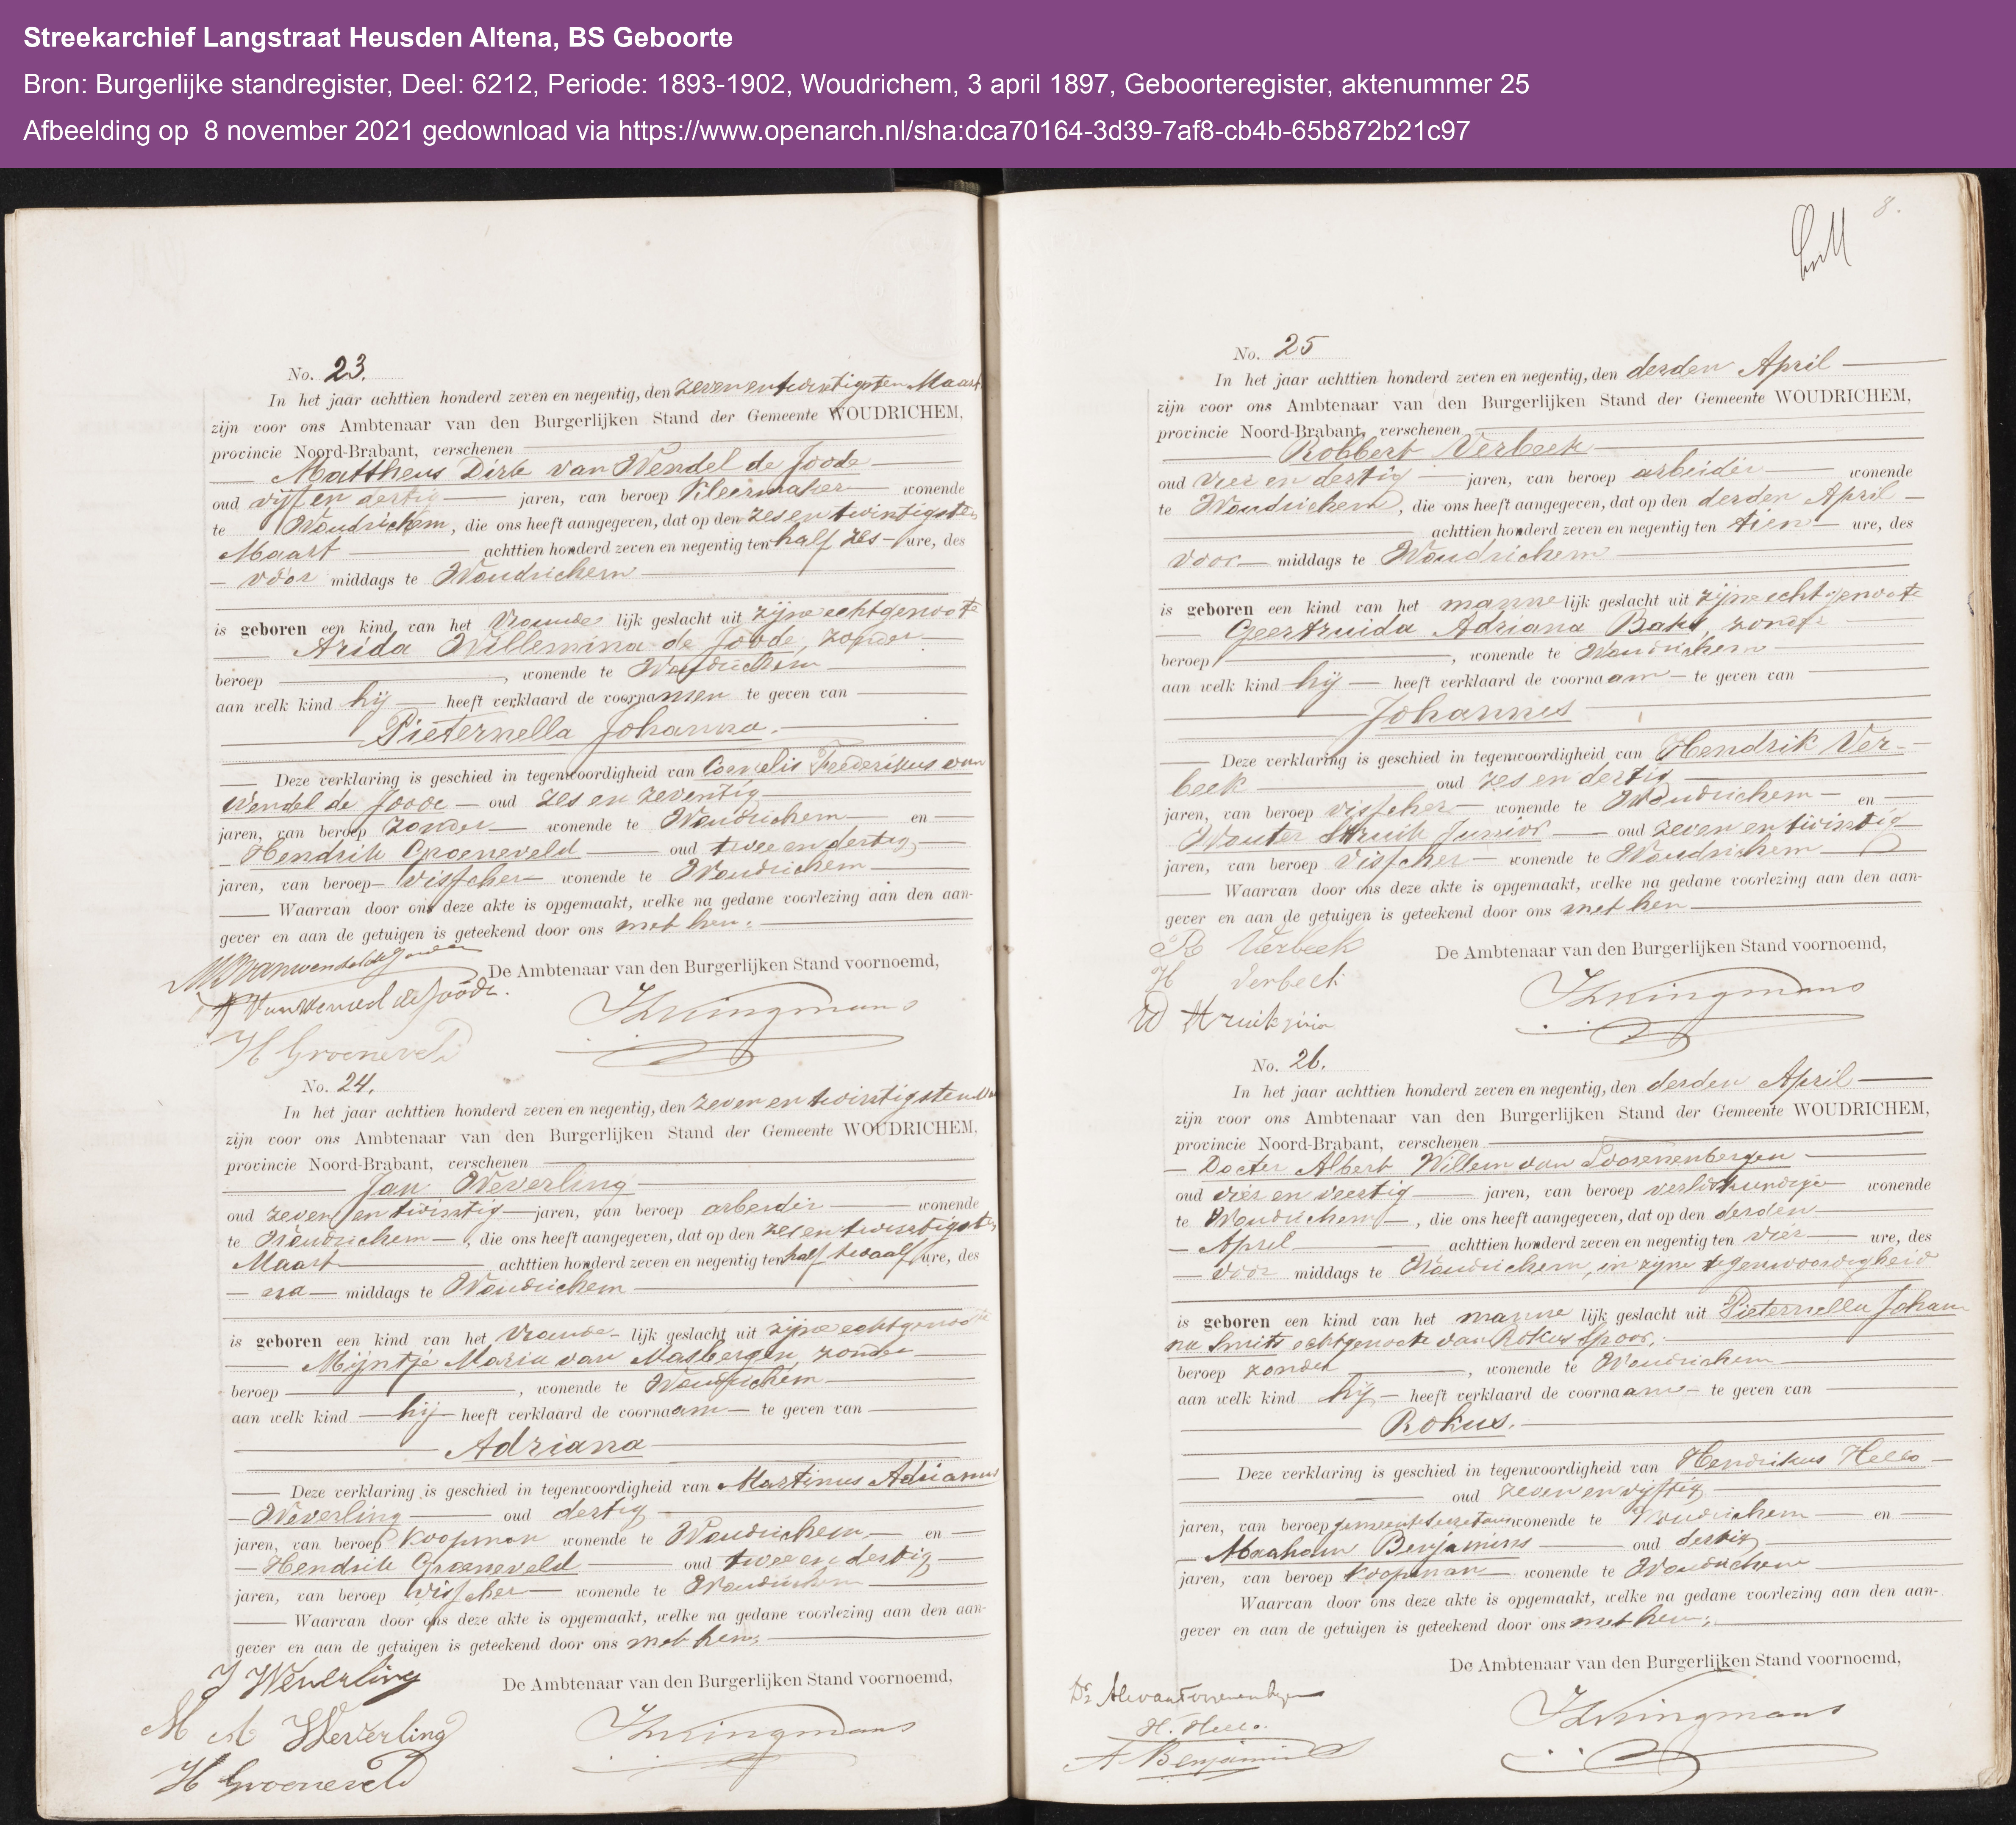 Streekarchief Langstraat Heusden Altena, BS Geboorte
Bron: Burgerlijke standregister, Deel: 6212, Periode: 1893-1902, Woudrichem, 3 april 1897, Geboorteregister, aktenummer 25
Afbeelding op 8 november 2021 gedownload via https://www.openarch.nl/sha:dca70164-3d39-7af8-cb4b-65b872b21c97
No. 23.
In het jaar achttien honderd zeven en negentig, den zeven en twintigsten Maart
zijn voor ons Ambtenaar van den Burgerlijken Stand der Gemeente WOUDRICHEM,
provincie Noord-Brabant, verschenen
Mattheus Dirk van Wendel de Joode
oud vijf en dertig jaren, van beroep Kleermaker wonende
te Woudrichem, die ons heeft aangegeven, dat op den zes en twintigsten
Maart achttien honderd zeven en negentig ten half zes ure, des
voor middags te Woudrichem
is geboren een kind van het vrouwe lijk geslacht uit zijne echtgenoote
Arida Willemina de Joode, zonder
beroep , wonende te Woudrichem
aan welk kind hij heeft verklaard de voornamen te geven van
Pieternella Johanna.
Deze verklaring is geschied in tegenwoordigheid van Cornelis Frederikus van
Wendel de Joode oud zes en zeventig
jaren, van beroep zonder wonende te Woudrichem en
Hendrik Groeneveld oud twee en dertig
jaren, van beroep visscher wonende te Woudrichem
Waarvan door ons deze akte is opgemaakt, welke na gedane voorlezing aan den aan-
gever en aan de getuigen is geteekend door ons met hen.
De Ambtenaar van den Burgerlijken Stand voornoemd,
van Wendel de Joode.
H Groeneveld
No. 24.
In het jaar achttien honderd zeven en negentig, den zeven en twintigsten
zijn voor ons Ambtenaar van den Burgerlijken Stand der Gemeente WOUDRICHEM,
provincie Noord-Brabant, verschenen
Jan Weverling
oud zeven en twintig jaren, van beroep arbeider wonende
te Woudrichem, die ons heeft aangegeven, dat op den zes en twintigsten
Maart achttien honderd zeven en negentig ten half twaalf ure, des
na middags te Woudrichem
is geboren een kind van het vrouwe lijk geslacht uit zijne echtgenoote
Mijntje Maria van Masbergen, zonder
beroep , wonende te Woudrichem
aan welk kind hij heeft verklaard de voornaam te geven van
Adriana
Deze verklaring is geschied in tegenwoordigheid van Martinus Adrianus
Weverling oud dertig
jaren, van beroep Koopman wonende te Woudrichem en
Hendrik Groeneveld oud twee en dertig
jaren, van beroep visscher wonende te Woudrichem
Waarvan door ons deze akte is opgemaakt, welke na gedane voorlezing aan den aan-
gever en aan de getuigen is geteekend door ons met hen.
J Weverling
De Ambtenaar van den Burgerlijken Stand voornoemd,
M A Weverling
H Groeneveld
8.
No. 25
In het jaar achttien honderd zeven en negentig, den derden April
zijn voor ons Ambtenaar van den Burgerlijken Stand der Gemeente WOUDRICHEM,
provincie Noord-Brabant, verschenen
Robbert Verbeek
oud vier en dertig jaren, van beroep arbeider wonende
te Woudrichem, die ons heeft aangegeven, dat op den derden April
achttien honderd zeven en negentig ten tien ure, des
voor middags te Woudrichem
is geboren een kind van het manne lijk geslacht uit zijne echtgenoote
Geertruida Adriana Bakx, zonder
beroep , wonende te Woudrichem
aan welk kind hij heeft verklaard de voornaam te geven van
Johannes
Deze verklaring is geschied in tegenwoordigheid van Hendrik Ver-
beek oud zes en dertig
jaren, van beroep visscher wonende te Woudrichem en
Wouter Struik Junior oud zeven en twintig
jaren, van beroep visscher wonende te Woudrichem
Waarvan door ons deze akte is opgemaakt, welke na gedane voorlezing aan den aan-
gever en aan de getuigen is geteekend door ons met hen
R Verbeek
De Ambtenaar van den Burgerlijken Stand voornoemd,
H Verbeek
W Struik
No. 26.
In het jaar achttien honderd zeven en negentig, den derden April
zijn voor ons Ambtenaar van den Burgerlijken Stand der Gemeente WOUDRICHEM,
provincie Noord-Brabant, verschenen
Docter Albert Willem van
oud vier en veertig jaren, van beroep verloskundige wonende
te Woudrichem, die ons heeft aangegeven, dat op den derden
April achttien honderd zeven en negentig ten vier ure, des
voor middags te Woudrichem, in zijne tegenwoordigheid
is geboren een kind van het manne lijk geslacht uit Pieternella Johan
na Smits echtgenoote van Rokus Spoor,
beroep zonder , wonende te Woudrichem
aan welk kind hij heeft verklaard de voornaam te geven van
Rokus.
Deze verklaring is geschied in tegenwoordigheid van Hendrikus Hello
oud zeven en vijftig
jaren, van beroep gemeentesecretaris wonende te Woudrichem en
Abraham Benjamins oud dertig
jaren, van beroep Koopman wonende te Woudrichem
Waarvan door ons deze akte is opgemaakt, welke na gedane voorlezing aan den aan-
gever en aan de getuigen is geteekend door ons met hen.
De Ambtenaar van den Burgerlijken Stand voornoemd,
H. Hello.
A Benjamins